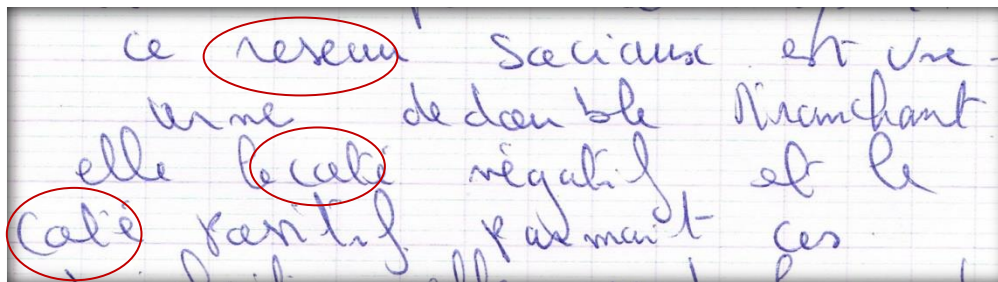 ce reseau sociaux est une
arme dedouble Tranchant
elle le coté négatif et le
coté positif parmait ces